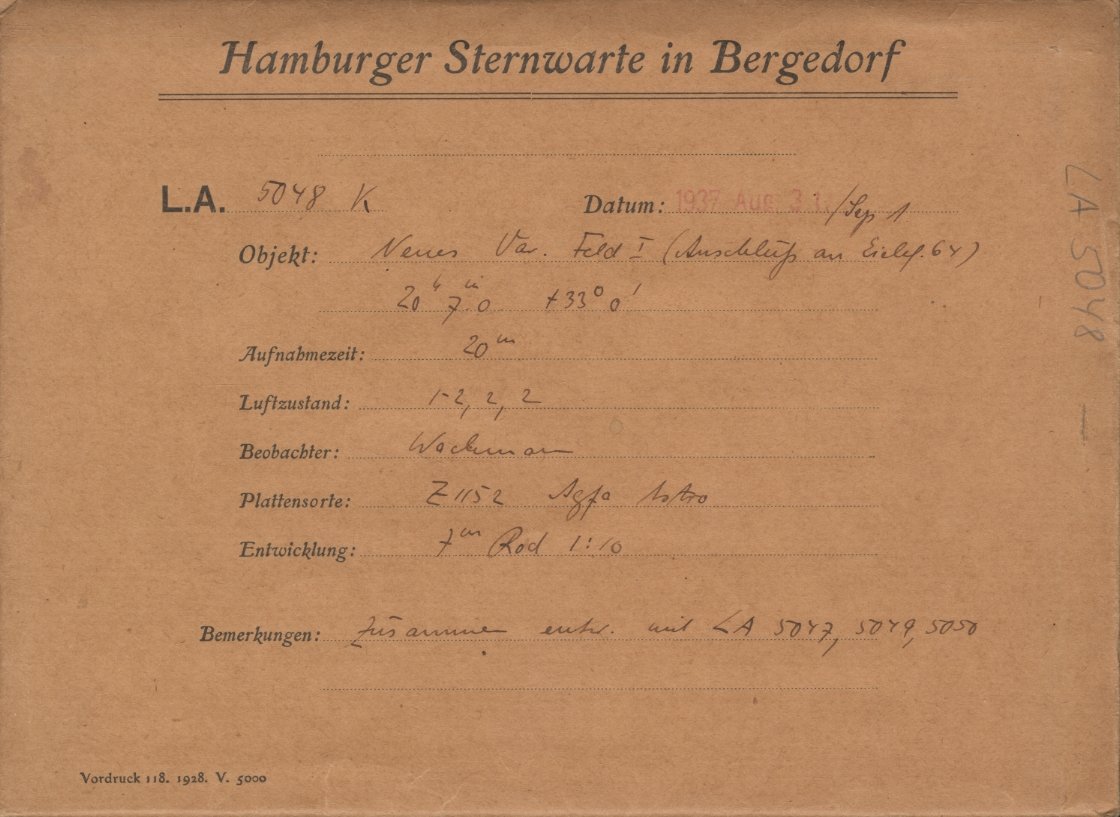 Hamburger Sternwarte in Bergedorf
L.A. 5048 K Datum: 1937 Aug 31./Sep 1
Objekt: Neues Var. Feld I (Anschluß an Eichf. 64)
20h 7m.0 +33° 0'
Aufnahmezeit: 20m
Luftzustand: 1-2, 2, 2
Beobachter: Wachmann
Plattensorte: Z1152 Agfa Astro
Entwicklung: 7m Rod 1:10
Bemerkungen: Zusammen entw. mit LA 5047, 5049, 5050
Vordruck 118. 1928. V. 5000
LA 5048